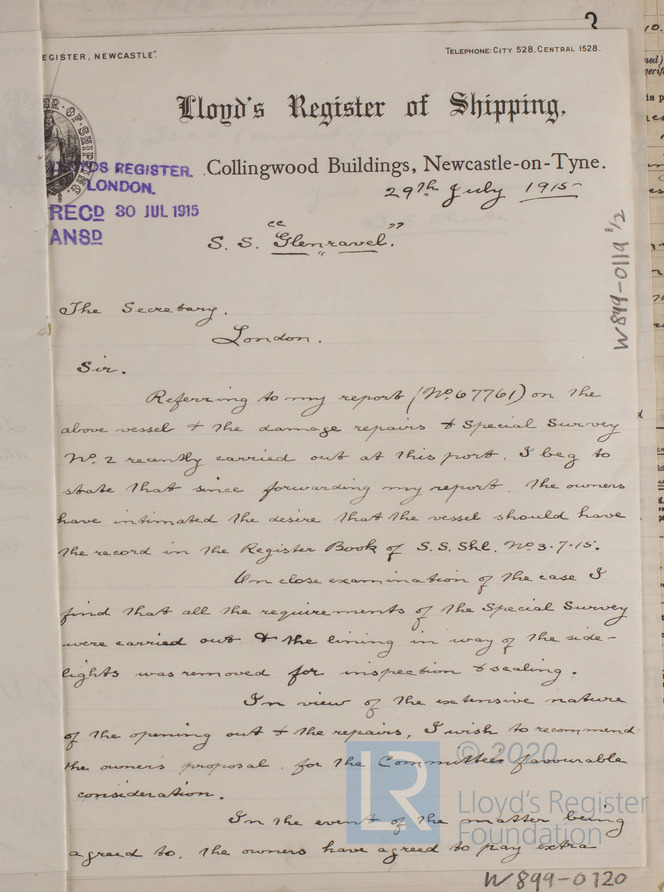 3
EGISTER, NEWCASTLE".
TELEPHONE: CITY 528, CENTRAL 1528.
Lloyd's Register of Shipping,
Collingwood Buildings, Newcastle-on-Tyne.
LOYDS REGISTER.
LONDON.
RECD 30 JUL 1915
ANSD
29th July 1915
S. S. "Glenravel".
W899-0119 1/2
The Secretary,
London.
Sir.
Referring to my report (No. 67761) on the
above vessel & the damage repairs & Special Survey
No. 2 recently carried out at this port, I beg to
state that since forwarding my report, the owners
have intimated the desire that the vessel should have
the record in the Register Book of S.S. Shl. No 3-7-15.
On close examination of the case I
find that all the requirements of the Special Survey
were carried out & the lining in way of the side-
lights was removed for inspection & sealing.
In view of the extensive nature
of the opening out & the repairs, I wish to recommend
the owners proposal for the Committee's favourable
consideration.
In the event of the matter being
agreed to, the owners have agreed to pay extra
LR
© 2020
Lloyd's Register
Foundation
W899-0120